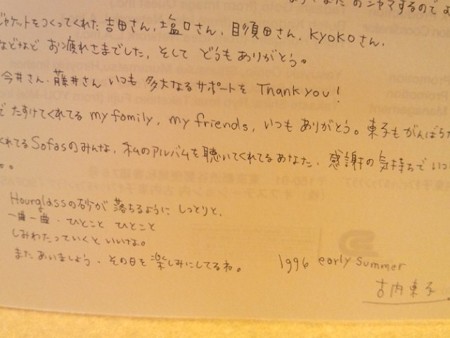 ジャケットをつくってくれた吉田さん、塩口さん、目須田さん、KYOKOさん、
などなど お疲れさまでした。そして どうもありがとう。
今井さん、藤井さん、いつも 多大なるサポートを Thank you!
たすけてくれてる my family, my friends, いつも ありがとう。東子もがんばら
くれてるSofasのみんな、私のアルバムを聴いてくれてるあなた、感謝の気持ちでいつ
Hourglassの砂が 落ちるように しっとりと、
一番一番、ひとこと ひとこと
しみわたっていくと いいけな。
また あいましょう。その日を 楽しみにしてるね。
1996 early summer
古内東子